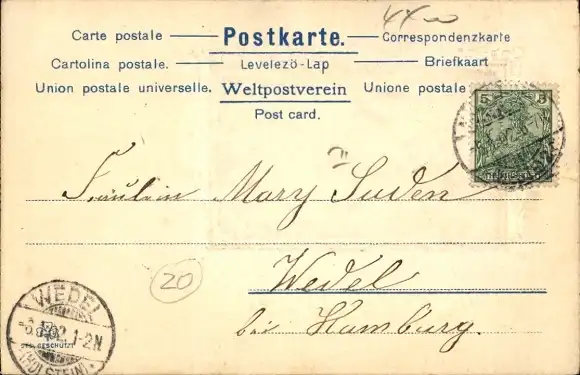 44
Carte postale — Postkarte. — Correspondenzkarte
Cartolina postale. — Levelező-Lap — Briefkaart
Union postale universelle. Weltpostverein Unione postale
Post card.
5 5
Fräulein Mary Suden
Wedel
20
bei Hamburg.
WEDEL
1-2N
(HOLSTEIN)
GES. GESCHÜTZT